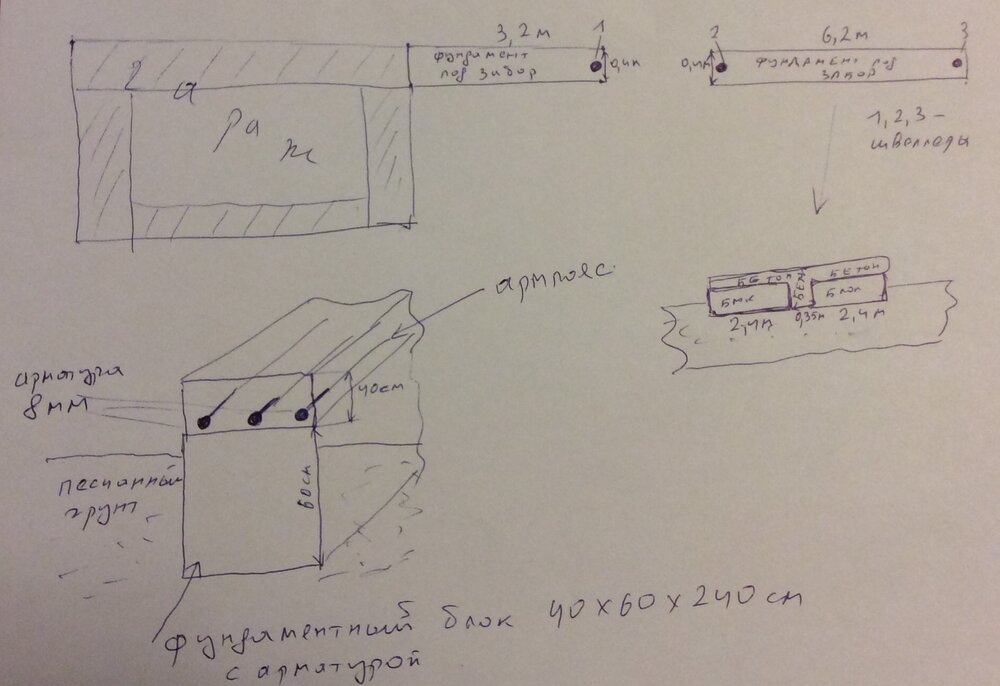 3,2м
1
фундамент
под забор
0,4м
2
6,2м
3
0,4м
фундамент под
забор
1,2,3 –
швеллеры
Гараж
армпояс
бетон
бетон
блок
бет
блок
2,4м
0,35м
2,4м
арматура
8мм
40см
песчанный
грунт
60см
фундаментный блок 40х60х240см
с арматурой